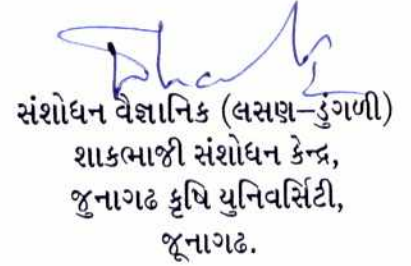 સંશોધન વૈજ્ઞાનિક (લસણ–ડુંગળી)
શાકભાજી સંશોધન કેન્દ્ર,
જુનાગઢ કૃષિ યુનિવર્સિટી,
જૂનાગઢ.